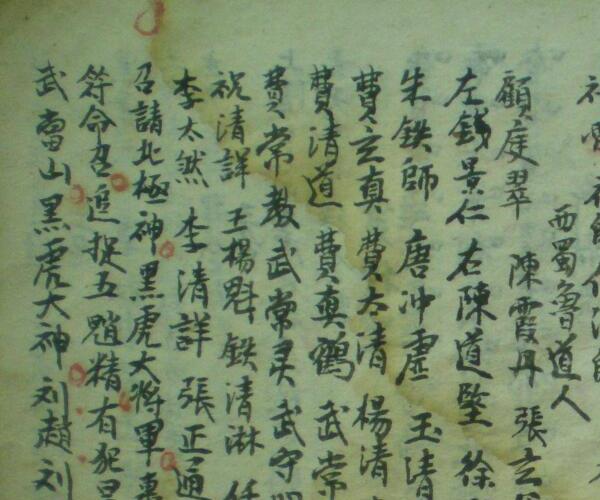 西蜀魯道人
顧庭翠 陳霞丹 張玄
左錢景仁 右陳道堅 徐
朱鉄師 唐冲虛 玉清
費玄真 費太清 楊清
費清道 費真鶴 武常
費常教 武常灵 武守
祝清詳 王楊魁 鉄清淋
李太然 李清詳 張正通
召請北極神黑虎大將軍
符命召進捉五魈精有犯
武當山黑虎大神刘趙刘